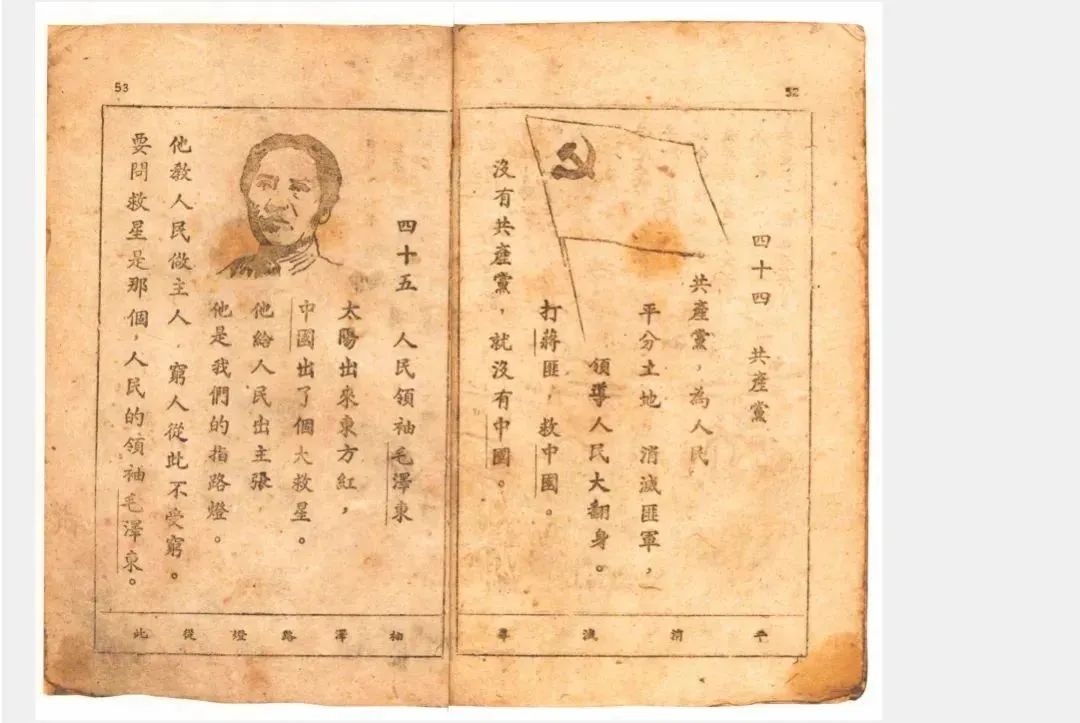 52
四十四 共產黨
共產黨，為人民
平分土地 消滅匪軍，
領導人民大翻身。
打蔣匪，救中國。
沒有共產黨，就沒有中國。
平 消 滅 導
53
四十五 人民領袖毛澤東
太陽出來東方紅，
中國出了個大救星。
他給人民出主張
他是我們的指路燈。
他教人民做主人 窮人從此不受窮。
要問救星是那個，人民的領袖毛澤東。
袖 澤 路 燈 從 此